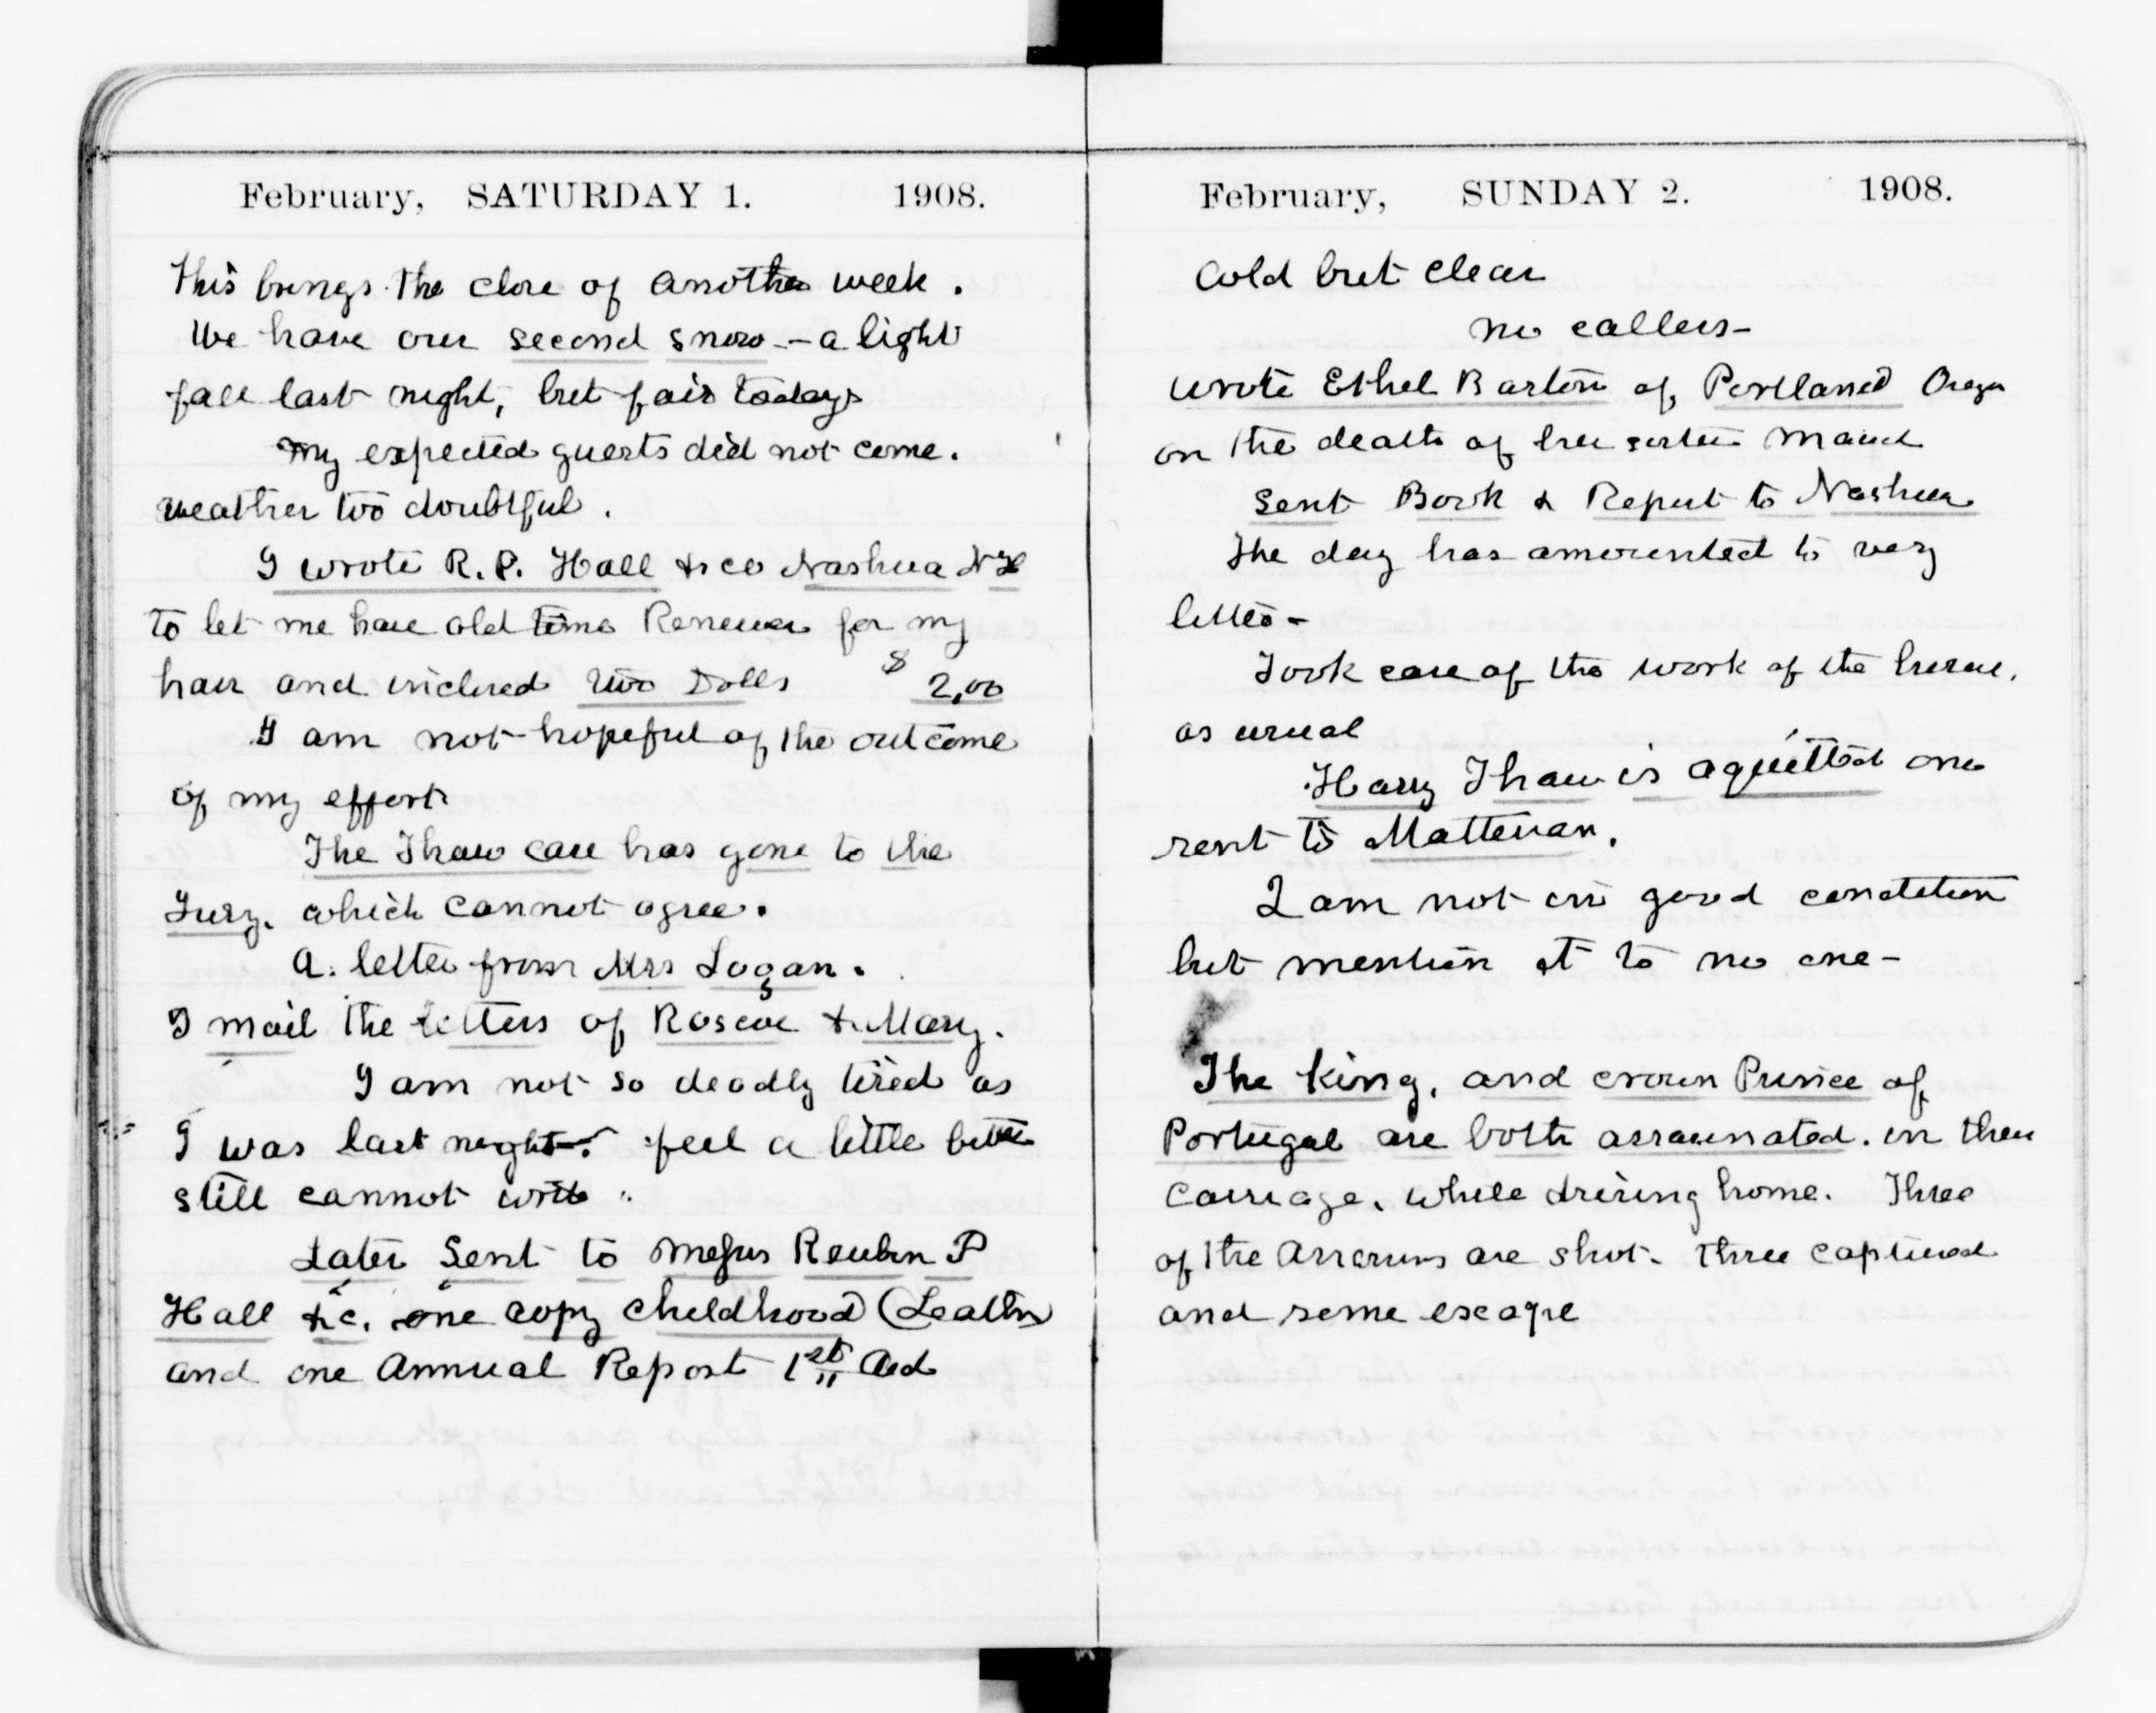 February, SATURDAY 1. 1908.
This brings the close of another week.
We have our second snow - a light
fall last night, but fair today
My expected guests did not come.
weather too doubtful.
I wrote R. P. Hall & co Nashua N H
to let me have old time Renewer for my
hair and inclosed two Dolls $ 2,00
I am not hopeful of the outcome
of my effort
The Thaw case has gone to the
Jury. which cannot agree.
A. letter from Mrs Logan.
I mail the letters of Roscoe & Mary.
I am not so deadly tired as
I was last night. feel a little better
still cannot write
Later Sent to Messrs Reuben P
Hall & c. one copy childhood (Leather
and one Annual Report 1st Aid
February, SUNDAY 2. 1908.
Cold but clear
no callers-
wrote Ethel Barton of Portland Oregon
on the death of her sister Maud
Sent Book & Report to Nashua
The day has amounted to very
little-
Took care of the work of the house.
as usual
Harry Thaw is aquitted
sent to Mattewan.
I am not in good condition
but mention it to no one-
The King, and crown Prince of
Portugal are both assasinated. in their
carriage. while driving home. Three
of the are shot. three captured
and some escape